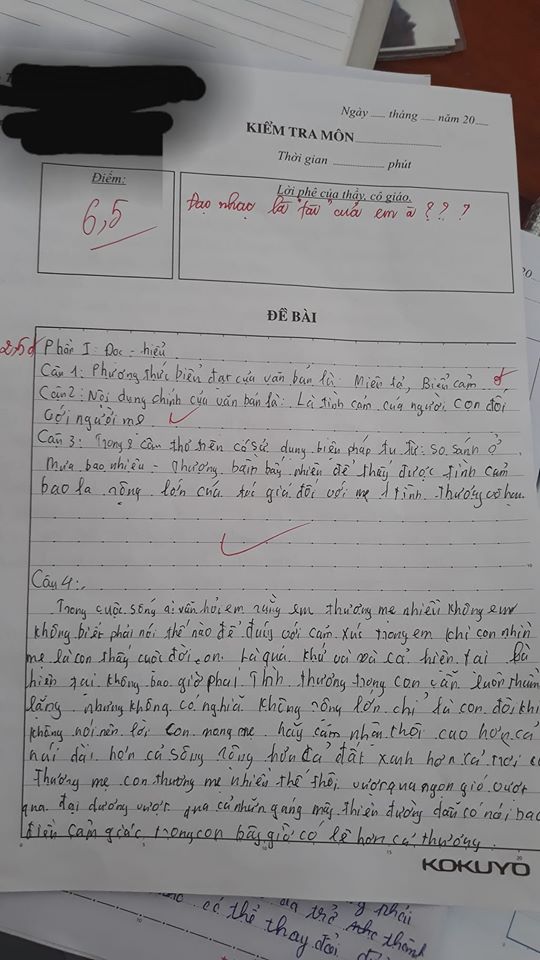 Ngày ___ tháng ___ năm 20___
KIỂM TRA MÔN
Thời gian ___ phút
Điểm:
6,5
Lời phê của thầy, cô giáo.
Đạo nhạc là "tài" của em à ? ? ?
ĐỀ BÀI
2,5đ
Phần I: Đọc - hiểu
Câu 1: Phương thức biểu đạt của văn bản là: Miêu tả, Biểu cảm
Câu 2: Nội dung chính của văn bản là: Là tình cảm của người con đối
với người mẹ
Câu 3: Trong 2 câu thơ trên có sử dụng biện pháp tu từ: so sánh ở
mưa bao nhiêu - Thương bầm bấy nhiêu để thấy được tình cảm
bao la rộng lớn của tác giả đối với mẹ 1 tình thương vô hạn
Câu 4:
Trong cuộc sống ai vẫn hỏi em rằng em thương mẹ nhiều không em
không biết phải nói thế nào để đúng với cảm xúc trong em khi con nhìn
mẹ là con thấy cuộc đời con. Là quá khứ và và cả hiện tại là
hiện tại không bao giờ phai. Tình thương trong con vẫn luôn thầm
lặng nhưng không có nghĩa không rộng lớn chỉ là con đôi khi
không nói nên lời con mong mẹ hãy cảm nhận thôi cao hơn cả
núi dài hơn cả sông rộng hơn cả đất xanh hơn cả trời
Thương mẹ con thương mẹ nhiều thế thôi vượt qua ngọn gió vượt
qua đại dương vượt qua cả những gang mây thiên đường dẫu có nói bao
điều cảm giác trong con bây giờ có lẽ hơn cả thương.
KOKUYO
có thể thay đổi